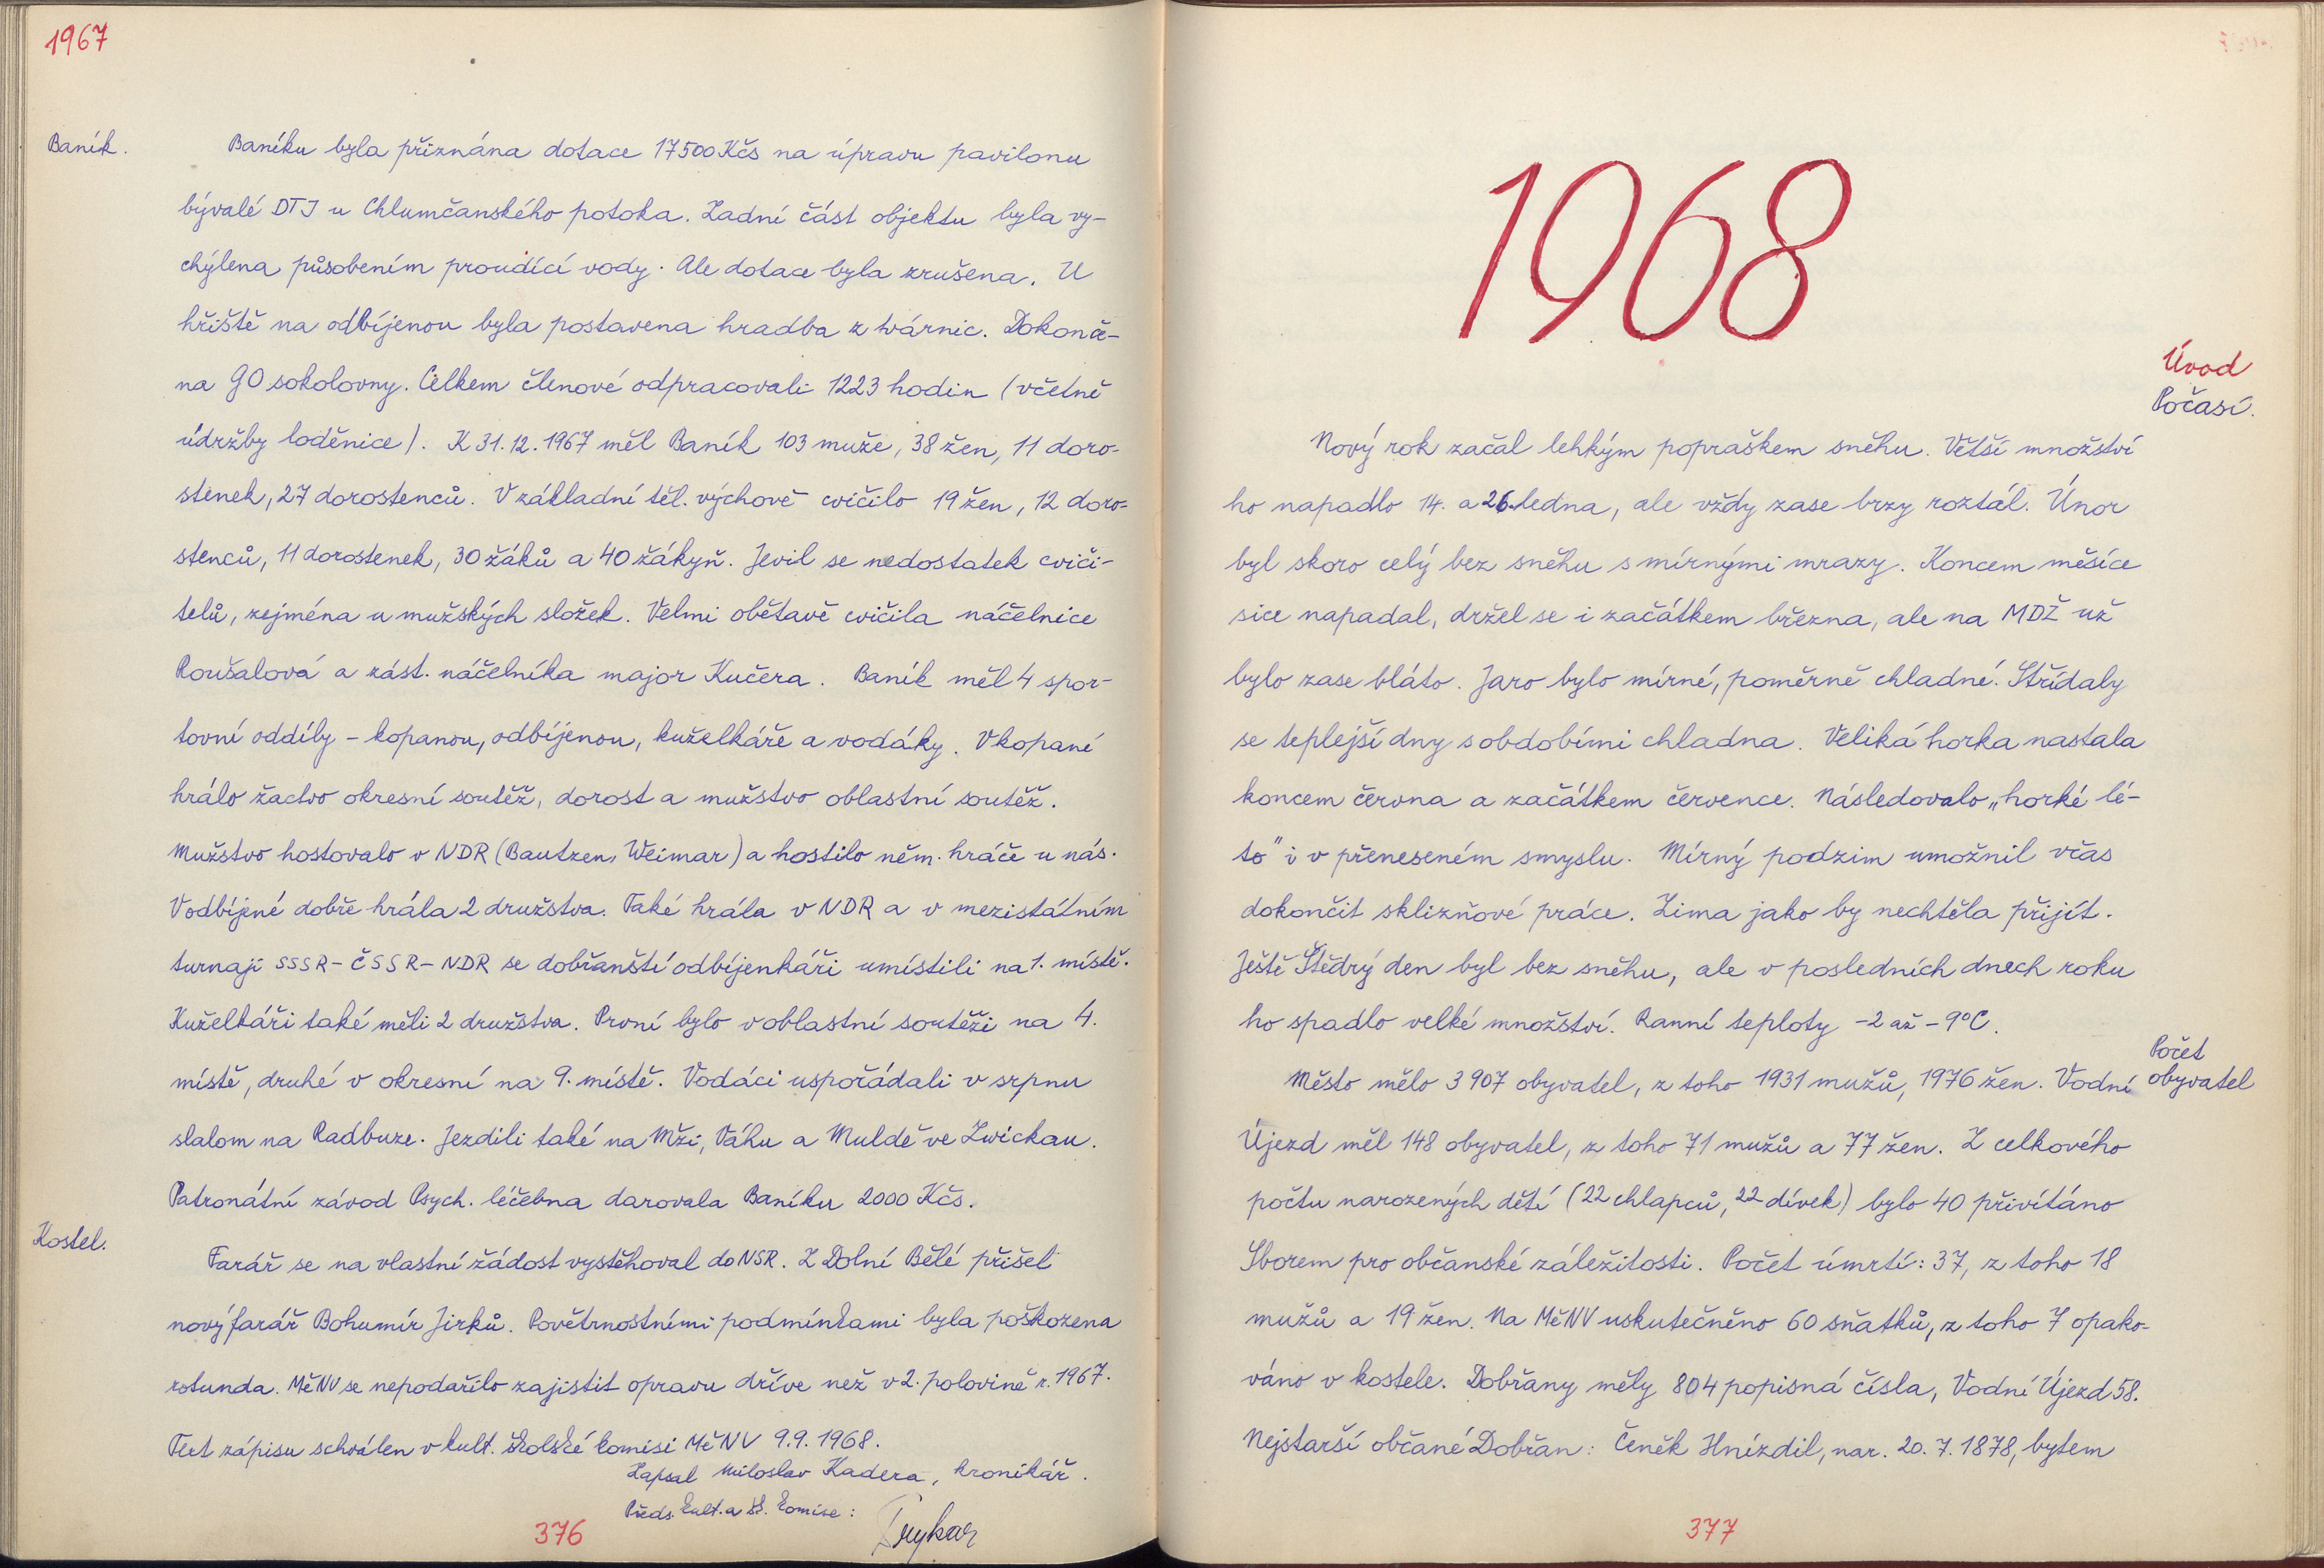 1967
Baník.
Baníku byla přiznána dotace 17500 Kčs na úpravu pavilonu
bývalé DTJ u Chlumčanského potoka. Zadní část objektu byla vy-
chýlena působením proudící vody. Ale dotace byla zrušena. U
hřiště na odbíjenou byla postavena hradba z tvárnic. Dokonče-
na GO sokolovny. Celkem členové odpracovali 1223 hodin (včetně
údržby loděnice). K 31.12.1967 měl Baník 103 muže, 38 žen, 11 doro-
stenek, 27 dorostenců. V základní těl. výchově cvičilo 19 žen, 12 doro-
stenců, 11 dorostenek, 30 žáků a 40 žákyň. Jevil se nedostatek cviči-
telů, zejména u mužských složek. Velmi obětavě cvičila náčelnice
Roušalová a zást. náčelníka major Kučera. Baník měl 4 spor-
tovní oddíly - kopanou, odbíjenou, kuželkáře a vodáky. V kopané
hrálo žactvo okresní soutěž, dorost a mužstvo oblastní soutěž.
Mužstvo hostovalo v NDR (Bautzen, Weimar) a hostilo něm. hráče u nás.
V odbíjené dobře hrála 2 družstva. Také hrála v NDR a v mezistátním
turnaji SSSR - ČSSR - NDR se dobřanští odbíjenkáři umístili na 1. místě.
Kuželkáři také měli 2 družstva. První bylo v oblastní soutěži na 4.
místě, druhé v okresní na 9. místě. Vodáci uspořádali v srpnu
slalom na Radbuze. Jezdili také na Mži, Váhu a Muldě ve Zwickau.
Patronátní závod Psych. léčebna darovala Baníku 2000 Kčs.
Kostel.
Farář se na vlastní žádost vystěhoval do NSR. Z Dolní Bělé přišel
nový farář Bohumír Jirků. Povětrnostními podmínkami byla poškozena
rotunda. MěNV se nepodařilo zajistit opravu dříve než v 2. polovině r. 1967.
Text zápisu schválen v kult. školské komisi MěNV 9.9.1968.
Zapsal Miloslav Kadera, kronikář.
Předs. kult. a šk. komise:
376
1968
Úvod
Počasí.
Nový rok začal lehkým popraškem sněhu. Větší množství
ho napadlo 14. a 26. ledna, ale vždy zase brzy roztál. Únor
byl skoro celý bez sněhu s mírnými mrazy. Koncem měsíce
sice napadal, držel se i začátkem března, ale na MDŽ už
bylo zase bláto. Jaro bylo mírné, poměrně chladné. Střídaly
se teplejší dny s obdobími chladna. Veliká horka nastala
koncem června a začátkem července. Následovalo „horké lé-
to" i v přeneseném smyslu. Mírný podzim umožnil včas
dokončit sklizňové práce. Zima jako by nechtěla přijít.
Ještě Štědrý den byl bez sněhu, ale v posledních dnech roku
ho spadlo velké množství. Ranní teploty -2 až -9°C.
Počet
obyvatel
Město mělo 3 907 obyvatel, z toho 1931 mužů, 1976 žen. Vodní
Újezd měl 148 obyvatel, z toho 71 mužů a 77 žen. Z celkového
počtu narozených dětí (22 chlapců, 22 dívek) bylo 40 přivítáno
Sborem pro občanské záležitosti. Počet úmrtí: 37, z toho 18
mužů a 19 žen. Na MěNV uskutečněno 60 sňatků, z toho 7 opako-
váno v kostele. Dobřany měly 804 popisná čísla, Vodní Újezd 58.
Nejstarší občané Dobřan: Čeněk Hnízdil, nar. 20. 7. 1878, bytem
377